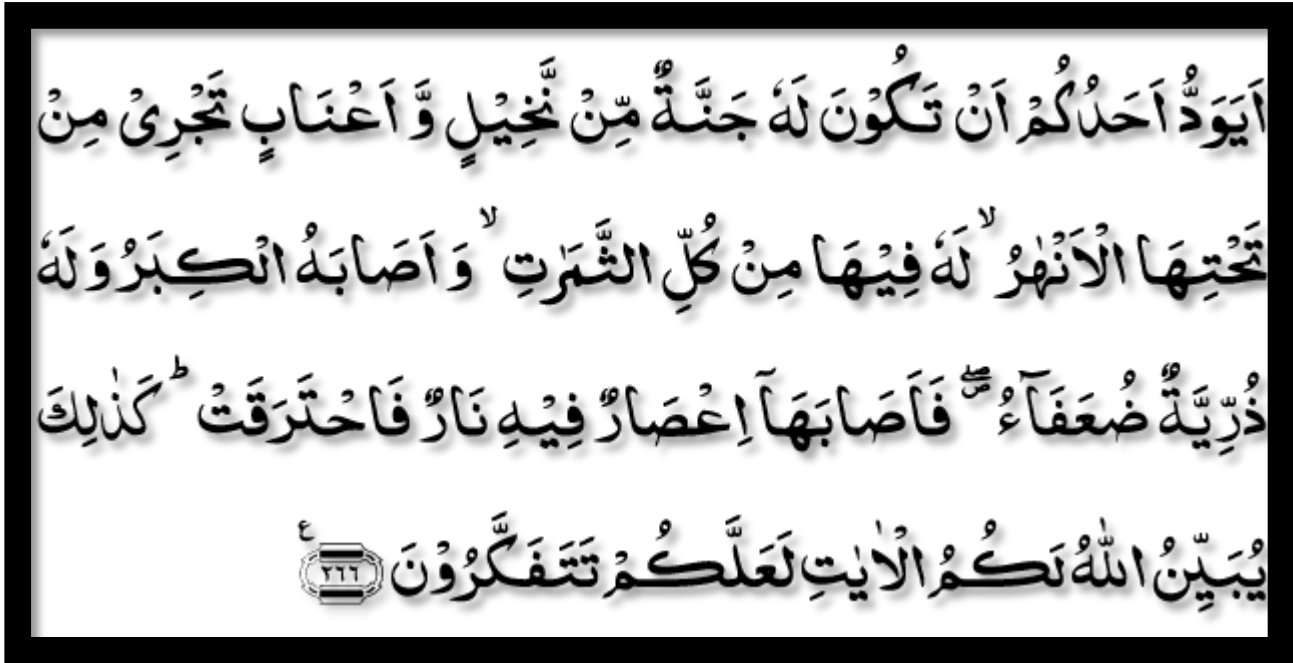 اَيَوَدُّ اَحَدُكُمْ اَنْ تَكُوْنَ لَهٗ جَنَّةٌ مِّنْ نَّخِيْلٍ وَّ اَعْنَابٍ تَجْرِىْ مِنْ
تَحْتِهَا الْاَنْهٰرُ ۙ لَهٗ فِيْهَا مِنْ كُلِّ الثَّمَرٰتِ ۙ وَ اَصَابَهُ الْكِبَرُ وَلَهٗ
ذُرِّيَّةٌ ضُعَفَآءُ ۖۚ فَاَصَابَهَاۤ اِعْصَارٌ فِيْهِ نَارٌ فَاحْتَرَقَتْ ؕ كَذٰلِكَ
يُبَيِّنُ اللّٰهُ لَكُمُ الْاٰيٰتِ لَعَلَّكُمْ تَتَفَكَّرُوْنَ ۝۲۶۶ ع